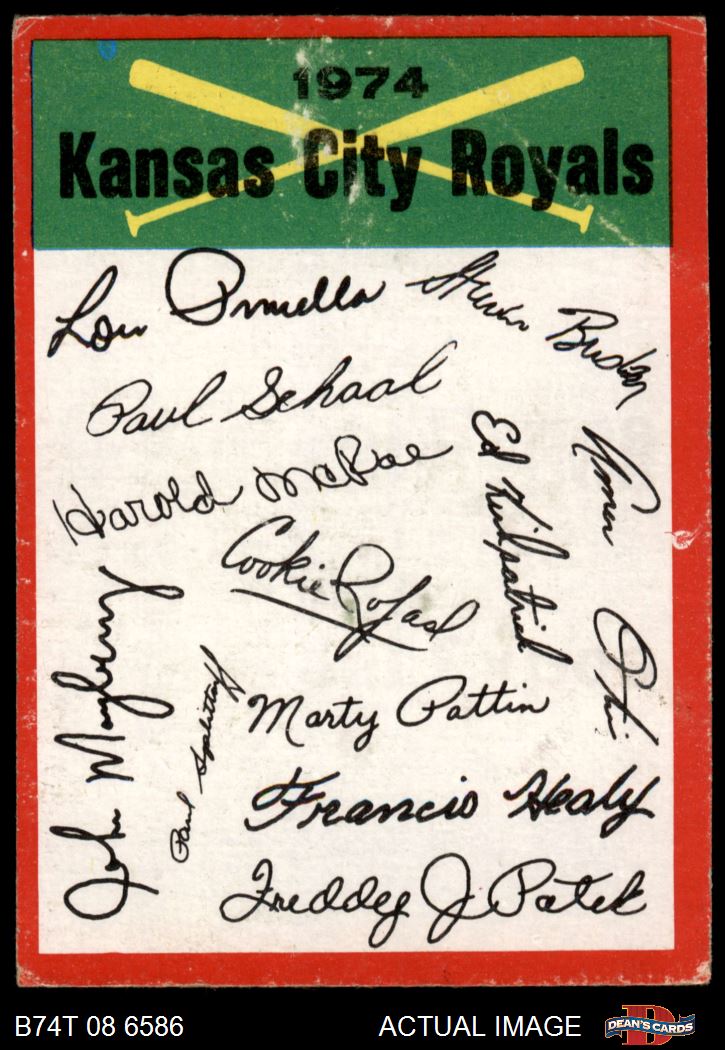 1974
Kansas City Royals
Lou Piniella
Steven Busby
Paul Schaal
Harold McRae
Ed Kirkpatrick
Amos Otis
Cookie Rojas
John Mayberry
Paul Splittorff
Marty Pattin
Francis Healy
Freddy J Patek
B74T 08 6586
ACTUAL IMAGE
D
DEAN'S CARDS